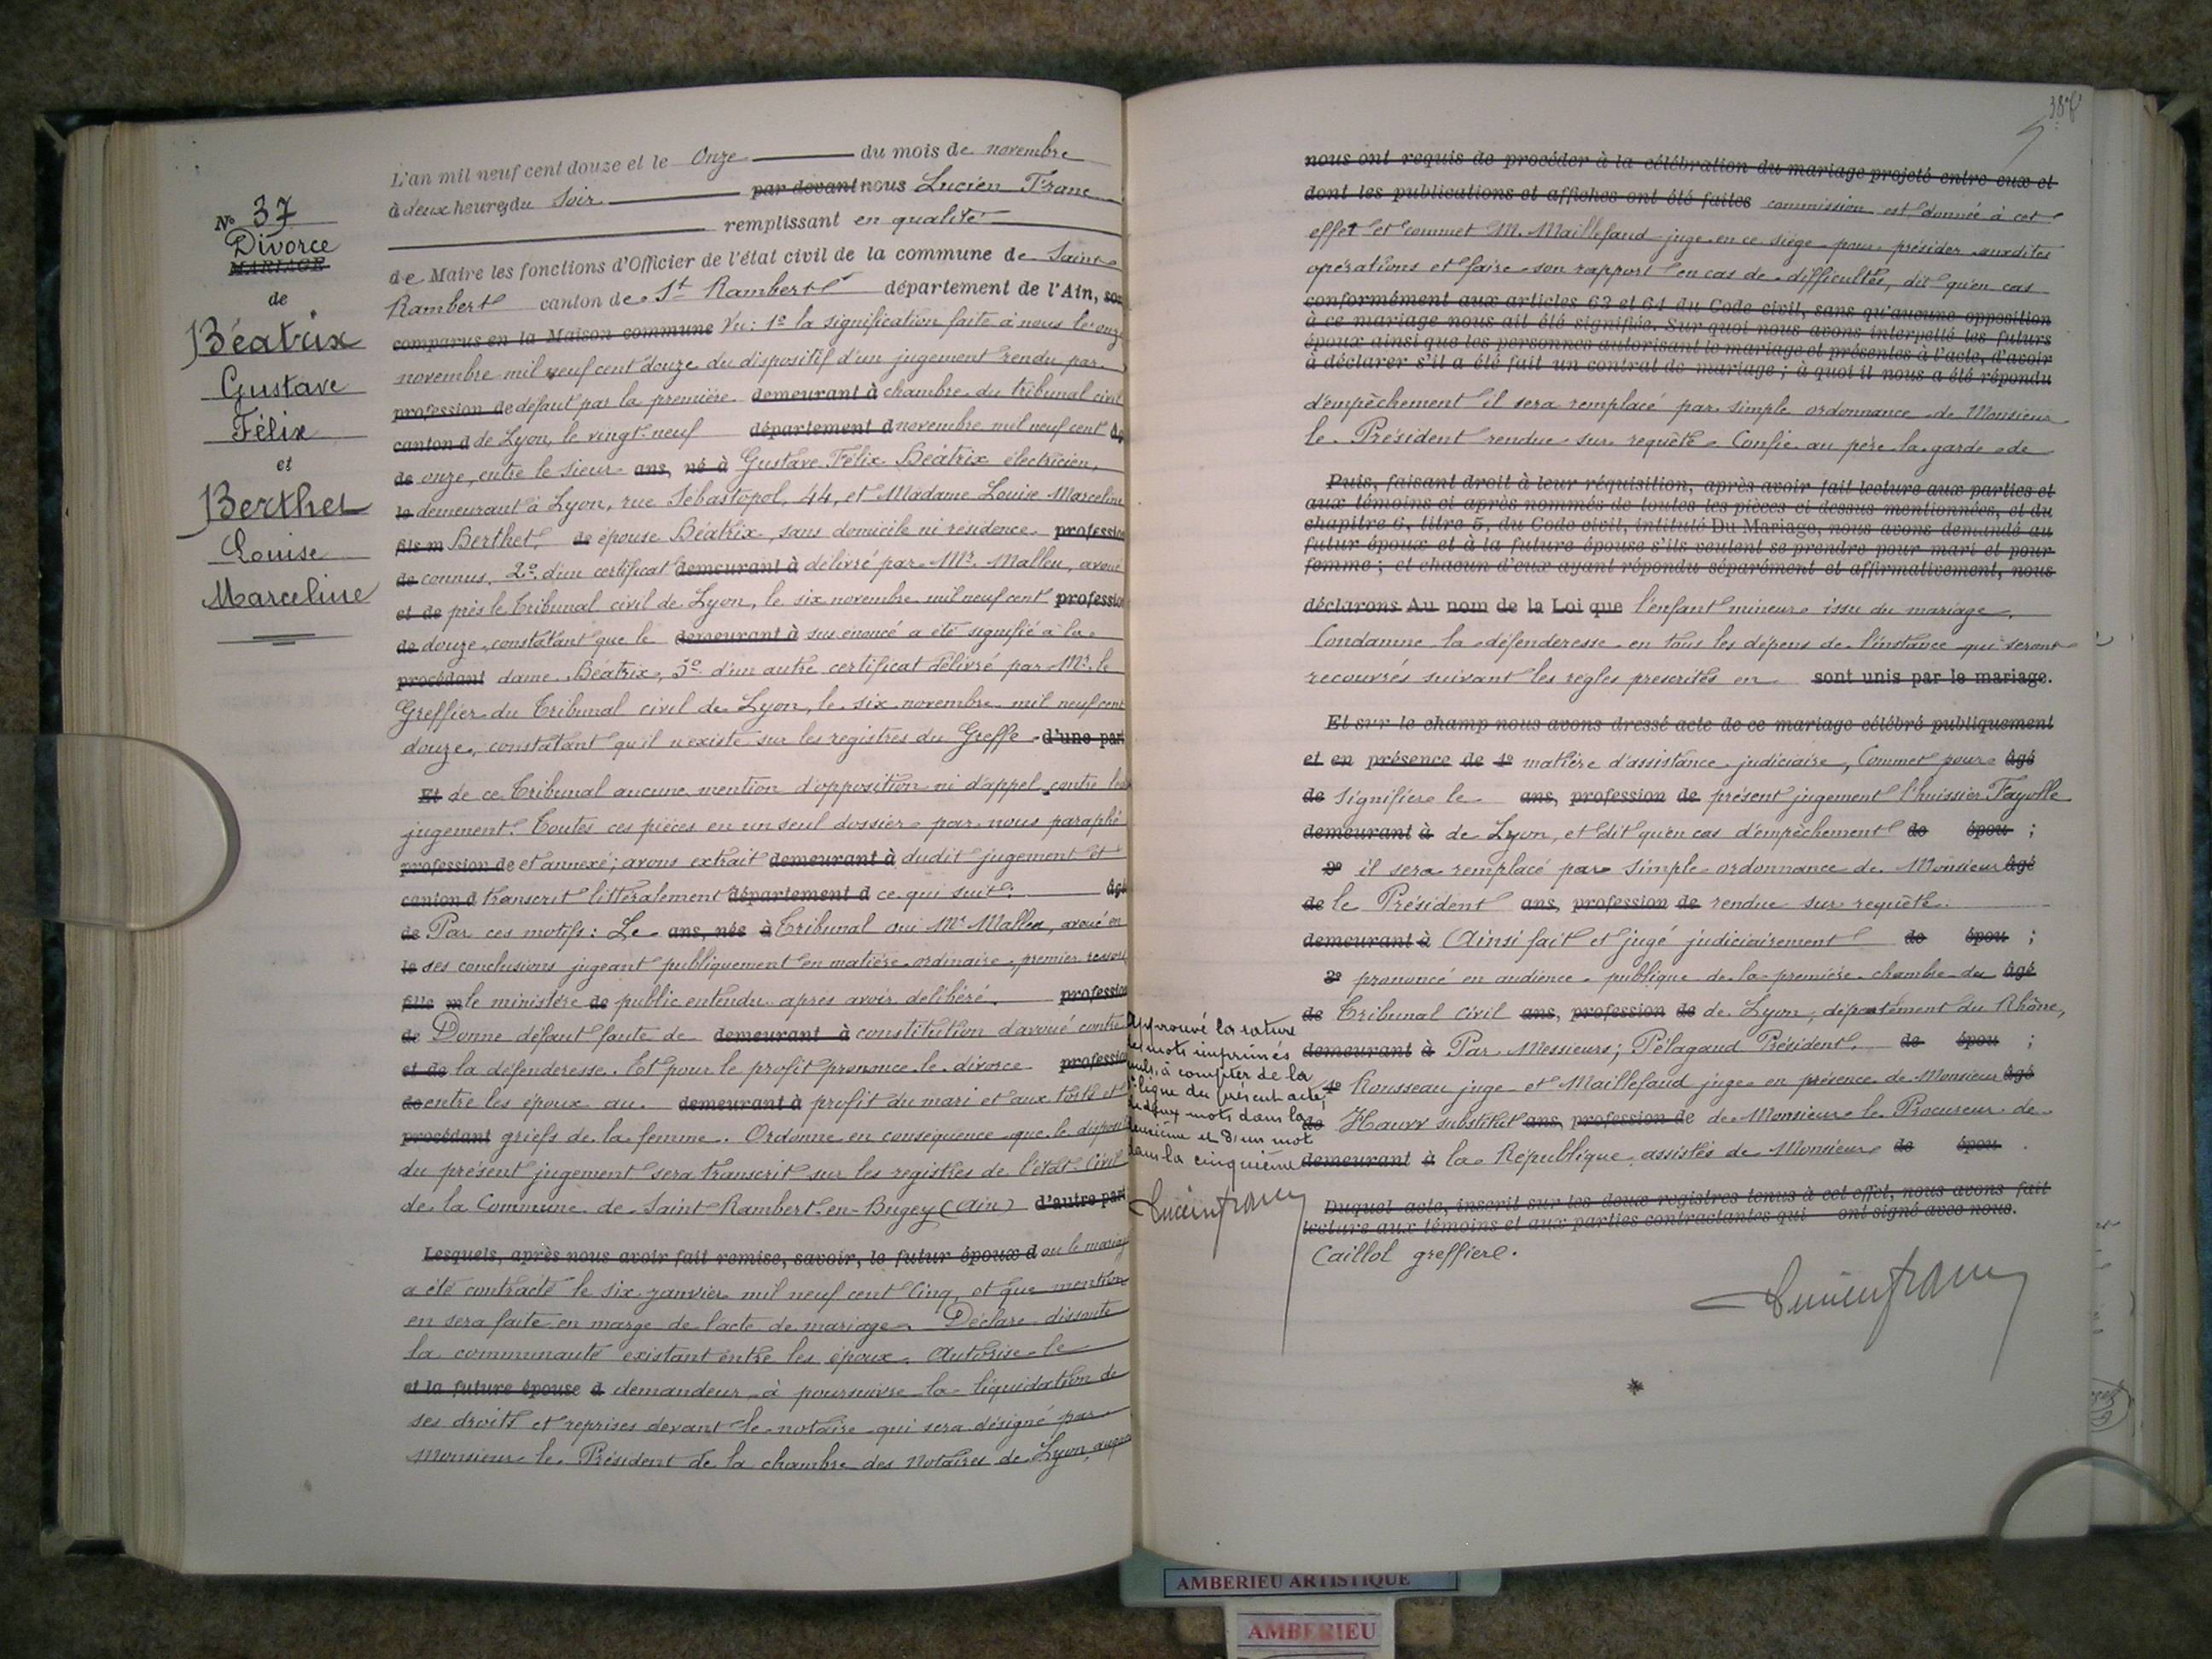 N° 37
Divorce
MARIAGE
de
Béatrix
Gustave
Félix
et
Berthet
Louise
Marceline
L'an mil neuf cent douze et le Onze du mois de novembre
à deux heures du Soir par devant nous Lucien Franc
remplissant en qualité
de Maire les fonctions d'Officier de l'état civil de la commune de Saint
Rambert canton de St Rambert département de l'Ain, son
comparus en la Maison commune Vu: 1° la signification faite à nous le onze
novembre mil neuf cent douze du dispositif d'un jugement rendu par
profession de défaut par la première demeurant à chambre du tribunal civil
canton d de Lyon, le vingt-neuf département d novembre mil neuf cent âg
de onze, entre le sieur ans, né à Gustave Félix Béatrix électricien,
le demeurant à Lyon, rue Sébastopol, 44, et Madame Louise Marceline
fils m Berthet, de épouse Béatrix, sans domicile ni résidence profession
de connus, 2° d'un certificat demeurant à délivré par Mr. Malleu, avoué
et de près le Tribunal civil de Lyon, le six novembre mil neuf cent profession
de douze, constatant que le demeurant à sus énoncé a été signifié à la
procédant dame Béatrix, 3° d'un autre certificat délivré par Mr. le
Greffier du Tribunal civil de Lyon, le six novembre mil neuf cent
douze, constatant qu'il n'existe sur les registres du Greffe d'une part
Et de ce Tribunal aucune mention d'opposition ni d'appel contre les
jugement. Toutes ces pièces en un seul dossier par nous paraphé
profession de et annexé; avons extrait demeurant à dudit jugement et
canton d transcrit littéralement département d ce qui suit: âgé
de Par ces motifs: Le ans, née à Tribunal oui Mr Malleu, avoué en
le ses conclusions jugeant publiquement en matière ordinaire premier ressort
fille m le ministère de public entendu après avoir délibéré. profession
de Donne défaut faute de demeurant à constitution d'avoué contre
et de la défenderesse. Et pour le profit prononce le divorce profession
de entre les époux au demeurant à profit du mari et aux torts et
procédant griefs de la femme. Ordonne en conséquence que le dispositif
du présent jugement sera transcrit sur les registres de l'état Civil
de la Commune de Saint Rambert-en-Bugey (Ain) d'autre part
Lesquels, après nous avoir fait remise, savoir, le futur époux d ou le mariage
a été contracté le six janvier mil neuf cent Cinq, et que mention
en sera faite en marge de l'acte de mariage. Déclare dissoute
la communauté existant entre les époux. Autorise le
et la future épouse d demandeur à poursuivre la liquidation de
ses droits et reprises devant le notaire qui sera désigné par
Monsieur le Président de la chambre des Notaires de Lyon, auquel
Approuvé la rature
des mots imprimés
nuls, à compter de la
ligne du présent acte,
de deux mots dans la
deuxième et d'un mot
dans la cinquième
Lucien Franc
nous ont requis de procéder à la célébration du mariage projeté entre eux et
dont les publications et affiches ont été faites commission est donnée à cet
effet et commet M. Maillefaud juge en ce siège pour présider auxdites
opérations et faire son rapport en cas de difficultés, dit qu'en cas
conformément aux articles 63 et 64 du Code civil, sans qu'aucune opposition
à ce mariage nous ait été signifiée. Sur quoi nous avons interpellé les futurs
époux ainsi que les personnes autorisant le mariage et présentes à l'acte, d'avoir
à déclarer s'il a été fait un contrat de mariage; à quoi il nous a été répondu
d'empêchement il sera remplacé par simple ordonnance de Monsieur
le Président rendue sur requête. Confie au père la garde de
Puis, faisant droit à leur réquisition, après avoir fait lecture aux parties et
aux témoins ci après nommés de toutes les pièces ci dessus mentionnées, et du
chapitre 6, titre 5, du Code civil, intitulé Du Mariage, nous avons demandé au
futur époux et à la future épouse s'ils veulent se prendre pour mari et pour
femme; et chacun d'eux ayant répondu séparément et affirmativement, nous
déclarons Au nom de la Loi que l'enfant mineur issu du mariage.
Condamne la défenderesse en tous les dépens de l'instance qui seront
recouvrés suivant les règles prescrites en sont unis par le mariage.
Et sur le champ nous avons dressé acte de ce mariage célébré publiquement
et en présence de 1° matière d'assistance judiciaire, Commet pour âgé
de signifier le ans, profession de présent jugement l'huissier Fayolle
demeurant à de Lyon, et dit qu'en cas d'empêchement de épou ;
2° il sera remplacé par simple ordonnance de Monsieur âgé
de le Président ans, profession de rendue sur requête.
demeurant à Ainsi fait et jugé judiciairement de épou ;
3° prononcé en audience publique de la première chambre du âgé
de Tribunal civil ans, profession de de Lyon, département du Rhône,
demeurant à Par Messieurs; Pélagaud Président, de épou ;
4° Rousseau juge et Maillefaud juge en présence de Monsieur âgé
de Haurr substitut ans, profession de de Monsieur le Procureur de
demeurant à la République assistés de Monsieur de épou .
Duquel acte, inscrit sur les deux registres tenus à cet effet, nous avons fait
lecture aux témoins et aux parties contractantes qui ont signé avec nous.
Caillol greffier.
Lucien Franc
AMBERIEU ARTISTIQUE
AMBERIEU